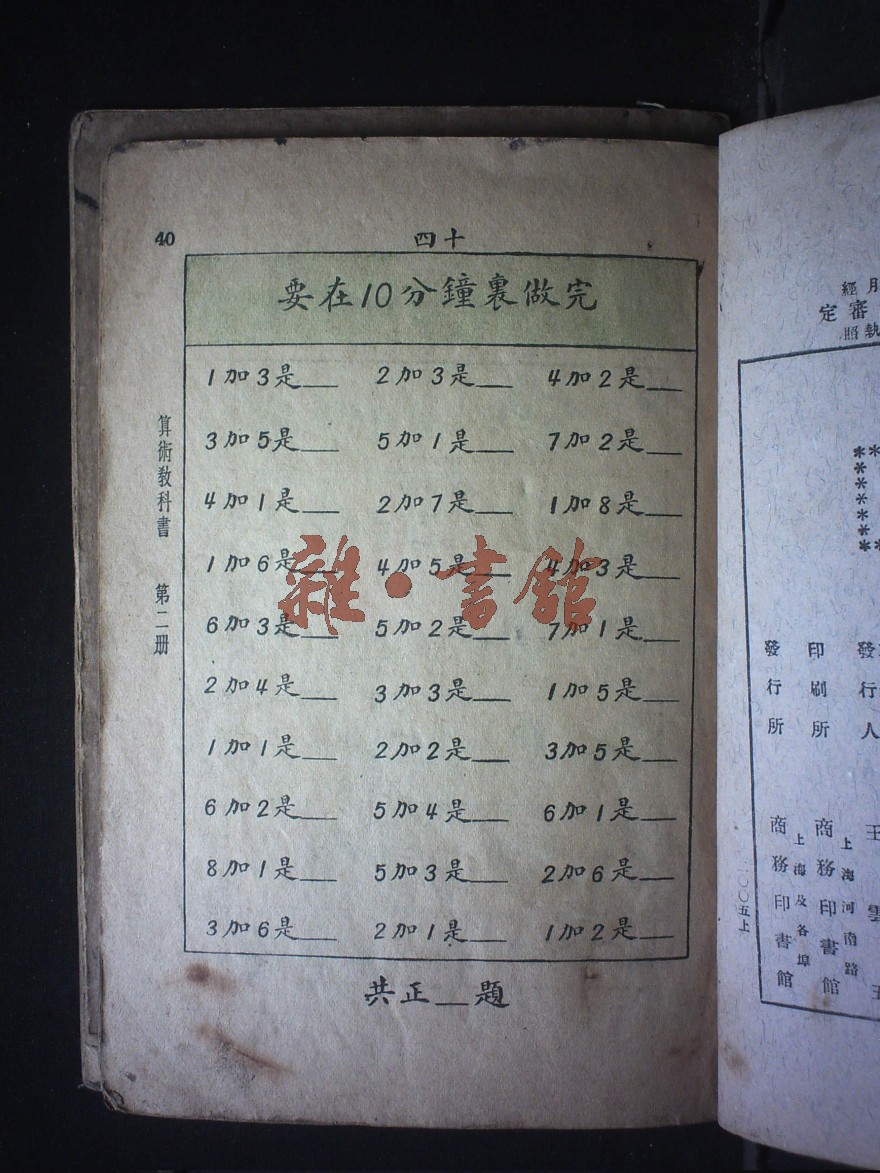 40
四十
要在10分鐘裏做完
1加3是__ 2加3是__ 4加2是__
3加5是__ 5加1是__ 7加2是__
4加1是__ 2加7是__ 1加8是__
1加6是__ 4加5是__ 4加3是__
6加3是__ 5加2是__ 7加1是__
2加4是__ 3加3是__ 1加5是__
1加1是__ 2加2是__ 3加5是__
6加2是__ 5加4是__ 6加1是__
8加1是__ 5加3是__ 2加6是__
3加6是__ 2加1是__ 1加2是__
共正__題
算術教科書 第二册
雜·書館
經
審定
執照
發行人 王雲
印刷所 上海河南路 商務印書館
發行所 上海及各埠 商務印書館
一〇〇五上